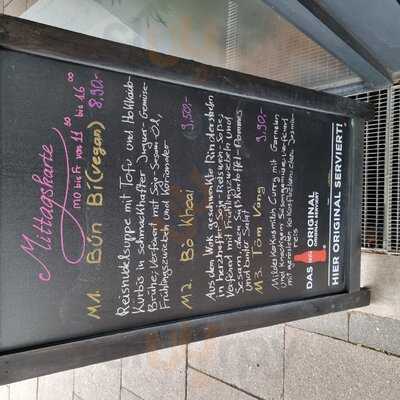 Mittagskarte
Mo bis Fr von 11⁰⁰ bis 16⁰⁰
M1. Bún Bí (vegan) 8,90.-
Reisnudelsuppe mit Tofu und Hokkaido-
Kürbis in schmackhafter Ingwer-Gemüse-
Brühe, Verfeinert mit Soja-Sesam-Öl,
Frühlingszwiebeln und Koriander
M2. Bò Khoai 9,50.-
Aus dem Wok geschwenkte Rinderstreifen
in herzhafter Soja-Reiswein-Soße,
Verfeinert mit Frühlingszwiebeln und
Sesam, dazu Kartoffel-Pommes
und bunter Salat
M3. Tôm Vàng 9,90.-
Mildes Kokosmilch Curry mit Garnelen
und knackigem Saisongemüse, verfeinert
mit gerösteten Kokosflocken, dazu Jasmin-
reis
DAS ORIGINAL.
HIER ORIGINAL SERVIERT!